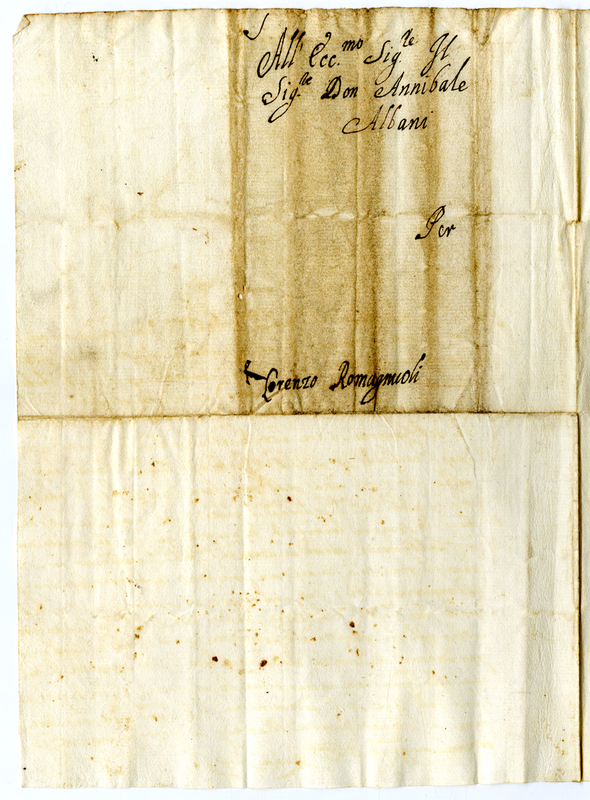 All' Ecc.mo Sig.re Il
Sig.re Don Annibale
Albani
Per
Lorenzo Romagnioli